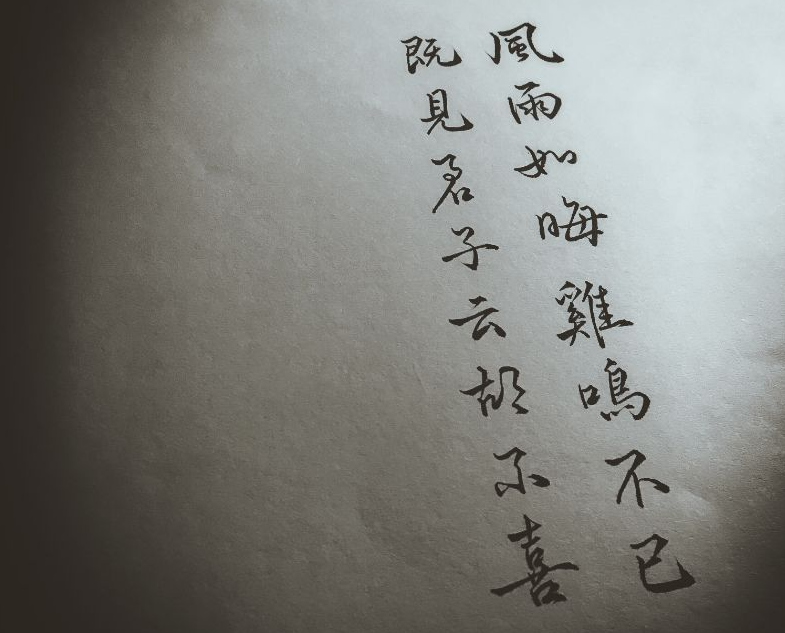 風雨如晦雞鳴不已
既見君子云胡不喜